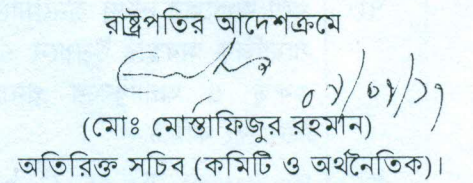 রাষ্ট্রপতির আদেশক্রমে
(মোঃ মোস্তাফিজুর রহমান)
অতিরিক্ত সচিব (কমিটি ও অর্থনৈতিক)।